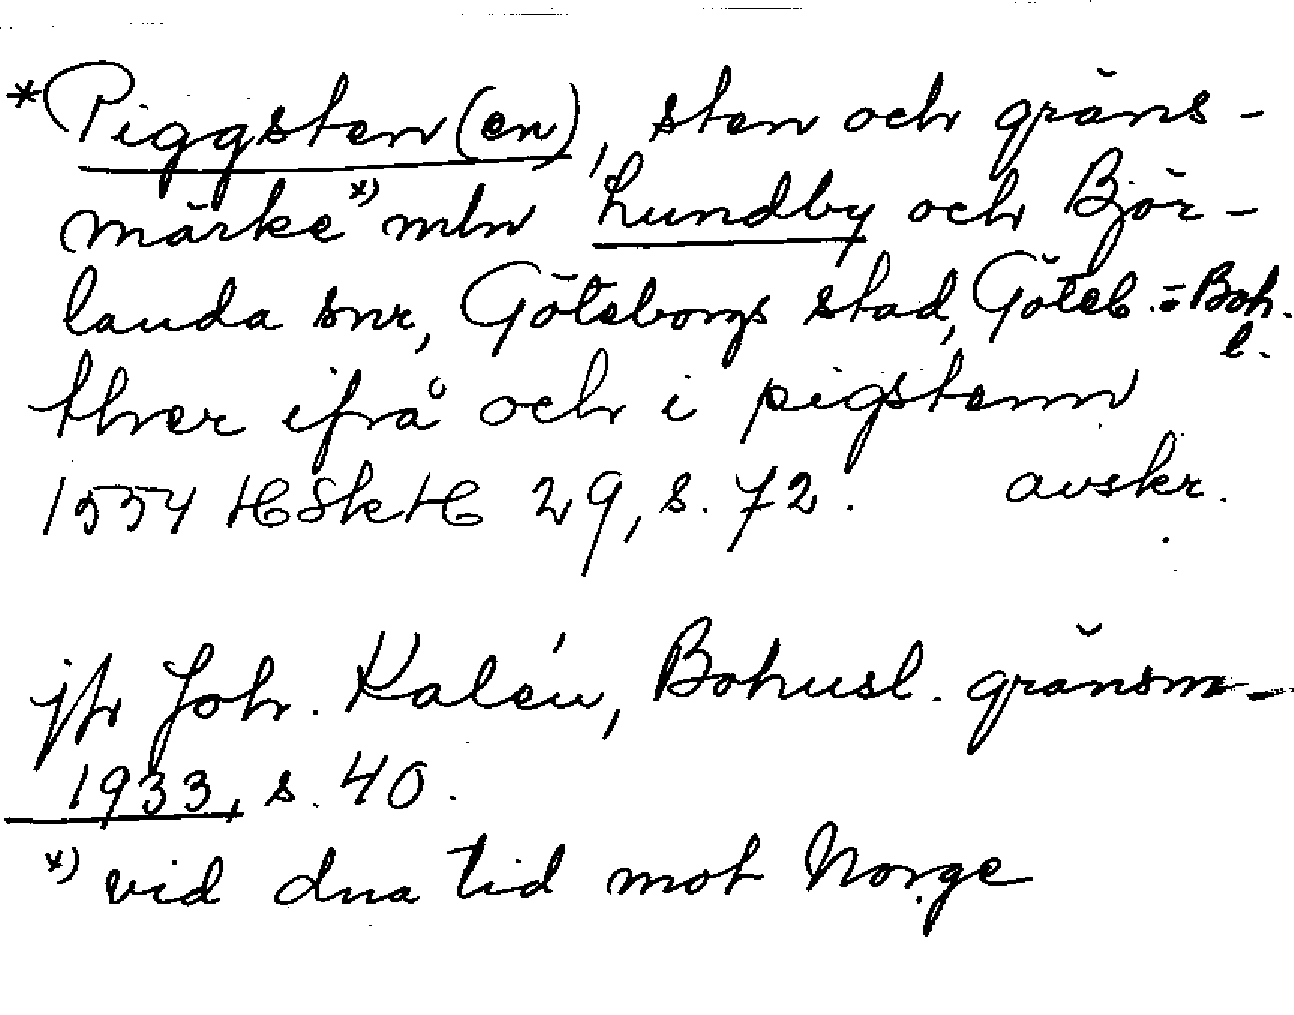 *Piggsten(en), sten och gräns-
märke *) mln Lundby och Björ-
landa snr, Göteborgs stad, Göteb.=Boh.
l.
thver ifrå och i pigstenn
1554 HSkH 29, s. 72. avskr.
jfr Joh. Kalén, Bohusl. gränsm-
1933, s. 40.
*) vid dna tid mot Norge